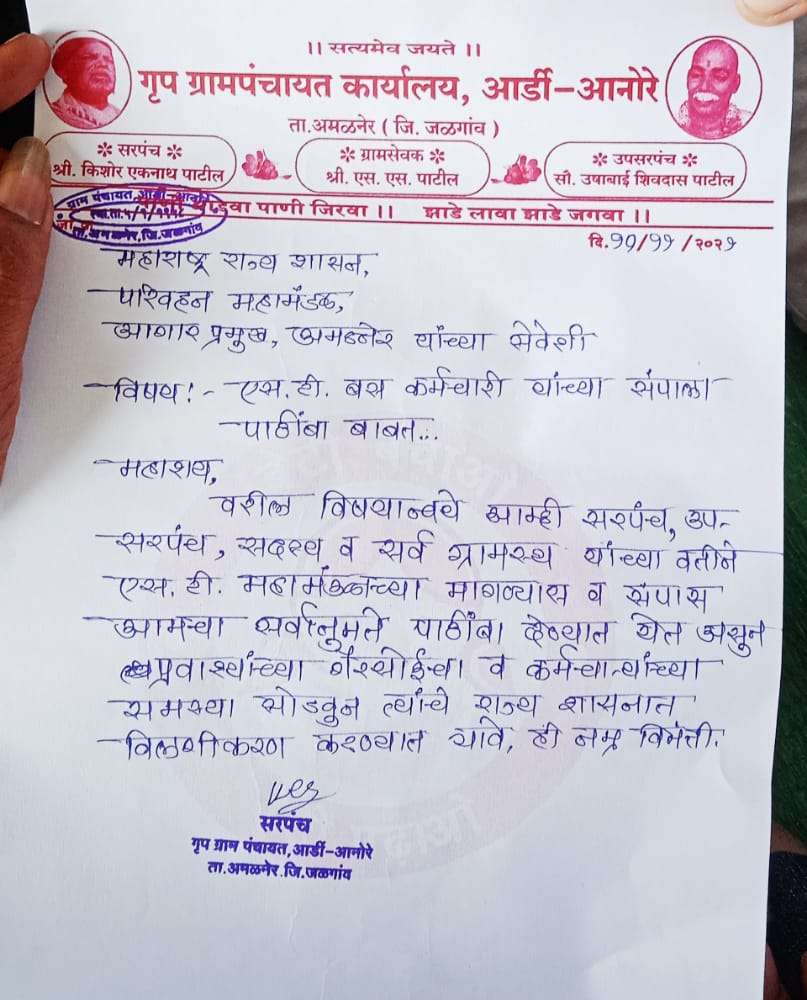 ।। सत्यमेव जयते ।।
गृप ग्रामपंचायत कार्यालय, आर्डी-आनोरे
ता.अमळनेर ( जि. जळगांव )
* सरपंच *
श्री. किशोर एकनाथ पाटील
* ग्रामसेवक *
श्री. एस. एस. पाटील
* उपसरपंच *
सौ. उषाबाई शिवदास पाटील
पाणी जिरवा ।। झाडे लावा झाडे जगवा ।।
ग्राम पंचायत आर्डी-आनोरे
ता.अमळनेर,जि.जळगांव
दि.११/११/२०२१
महाराष्ट्र राज्य शासन,
परिवहन महामंडळ,
आगार प्रमुख, अमळनेर यांच्या सेवेशी
विषय:- एस.टी. बस कर्मचारी यांच्या संपाला
पाठींबा बाबत...
महाशय,
वरील विषयान्वये आम्ही सरपंच, उप-
सरपंच, सदस्य व सर्व ग्रामस्थ यांच्या वतीने
एस.टी. महामंडळाच्या मागण्यास व संपास
आमचा सर्वानुमते पाठींबा देण्यात येत असुन
प्रवाश्यांच्या गैरसोईचा व कर्मचाऱ्यांच्या
समस्या सोडवुन त्यांचे राज्य शासनात
विलगीकरण करण्यात यावे, ही नम्र विनंती.
सरपंच
गृप ग्राम पंचायत,आर्डी-आनोरे
ता.अमळनेर.जि.जळगांव